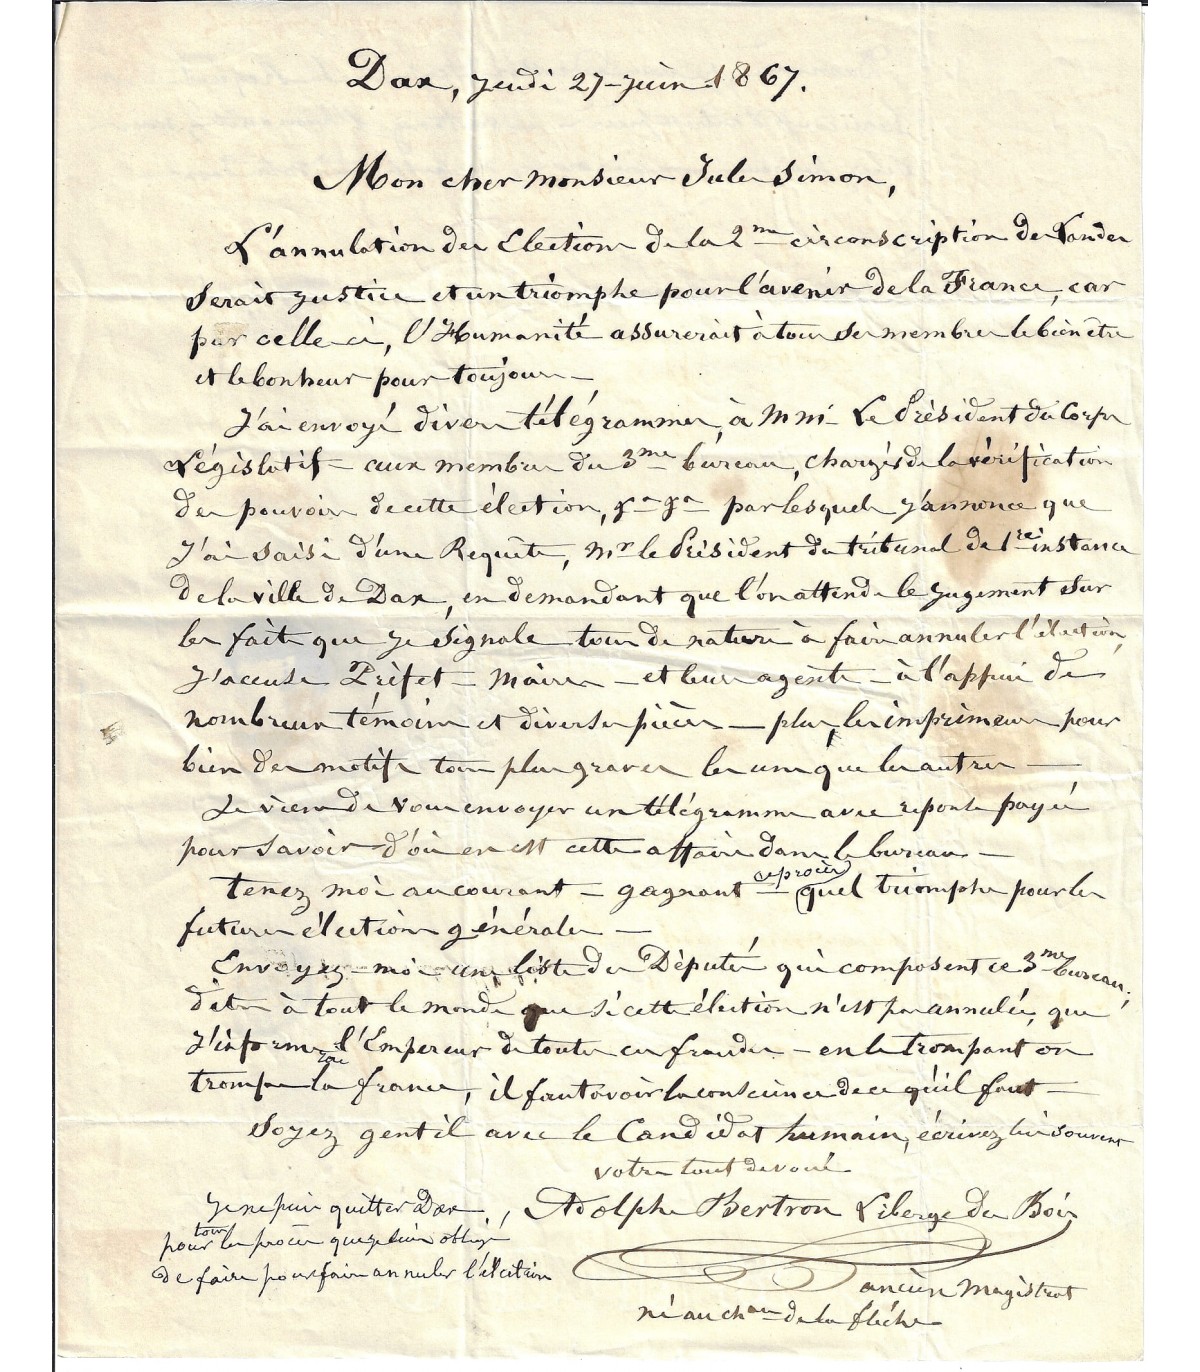 Dax, Jeudi 27 Juin 1867.
Mon cher monsieur Jules Simon,
L'annulation des Elections de la 2me circonscription des Landes
serait justice et un triomphe pour l'avenir de la France, car
par celle ci, l'Humanité assurerait à tous ses membres le bien être
et le bonheur pour toujours —
J'ai envoyé divers télégrammes, à MM. Le Président du Corps
Législatif — aux membres du 3me bureau, chargés de la vérification
des pouvoirs de cette élection, par lesquels j'annonce que
J'ai saisi d'une Requête, Mr le Président du tribunal de 1re instance
de la ville de Dax, en demandant que l'on attende le jugement sur
les faits que je signale tous de nature à faire annuler l'élection,
J'accuse Préfet — Maires — et leurs agents — à l'appui de
nombreux témoins et diverses pièces — plus, les imprimeurs pour
bien des motifs tous plus graves les uns que les autres —
Je viens de vous envoyer un télégramme avec réponse payée
pour savoir d'où en est cette affaire dans le bureau —
tenez moi au courant — gagnant ce procès quel triomphe pour les
futures élections générales —
Envoyez-moi une liste des Députés qui composent ce 3me bureau,
dites à tout le monde que si cette élection n'est pas annulée, que
J'informe l'Empereur de toutes ces fraudes — en le trompant on
trompe toute la france, il faut avoir la conscience de ce qu'il faut —
Soyez gentil avec le Candidat humain, écrivez lui souvent
votre tout dévoué
Adolphe Bertron Liberge Du Bois
ancien Magistrat
né au chau de la flèche
Je ne puis quitter Dax
pour tous les procès que je suis obligé
de faire pour faire annuler l'élection